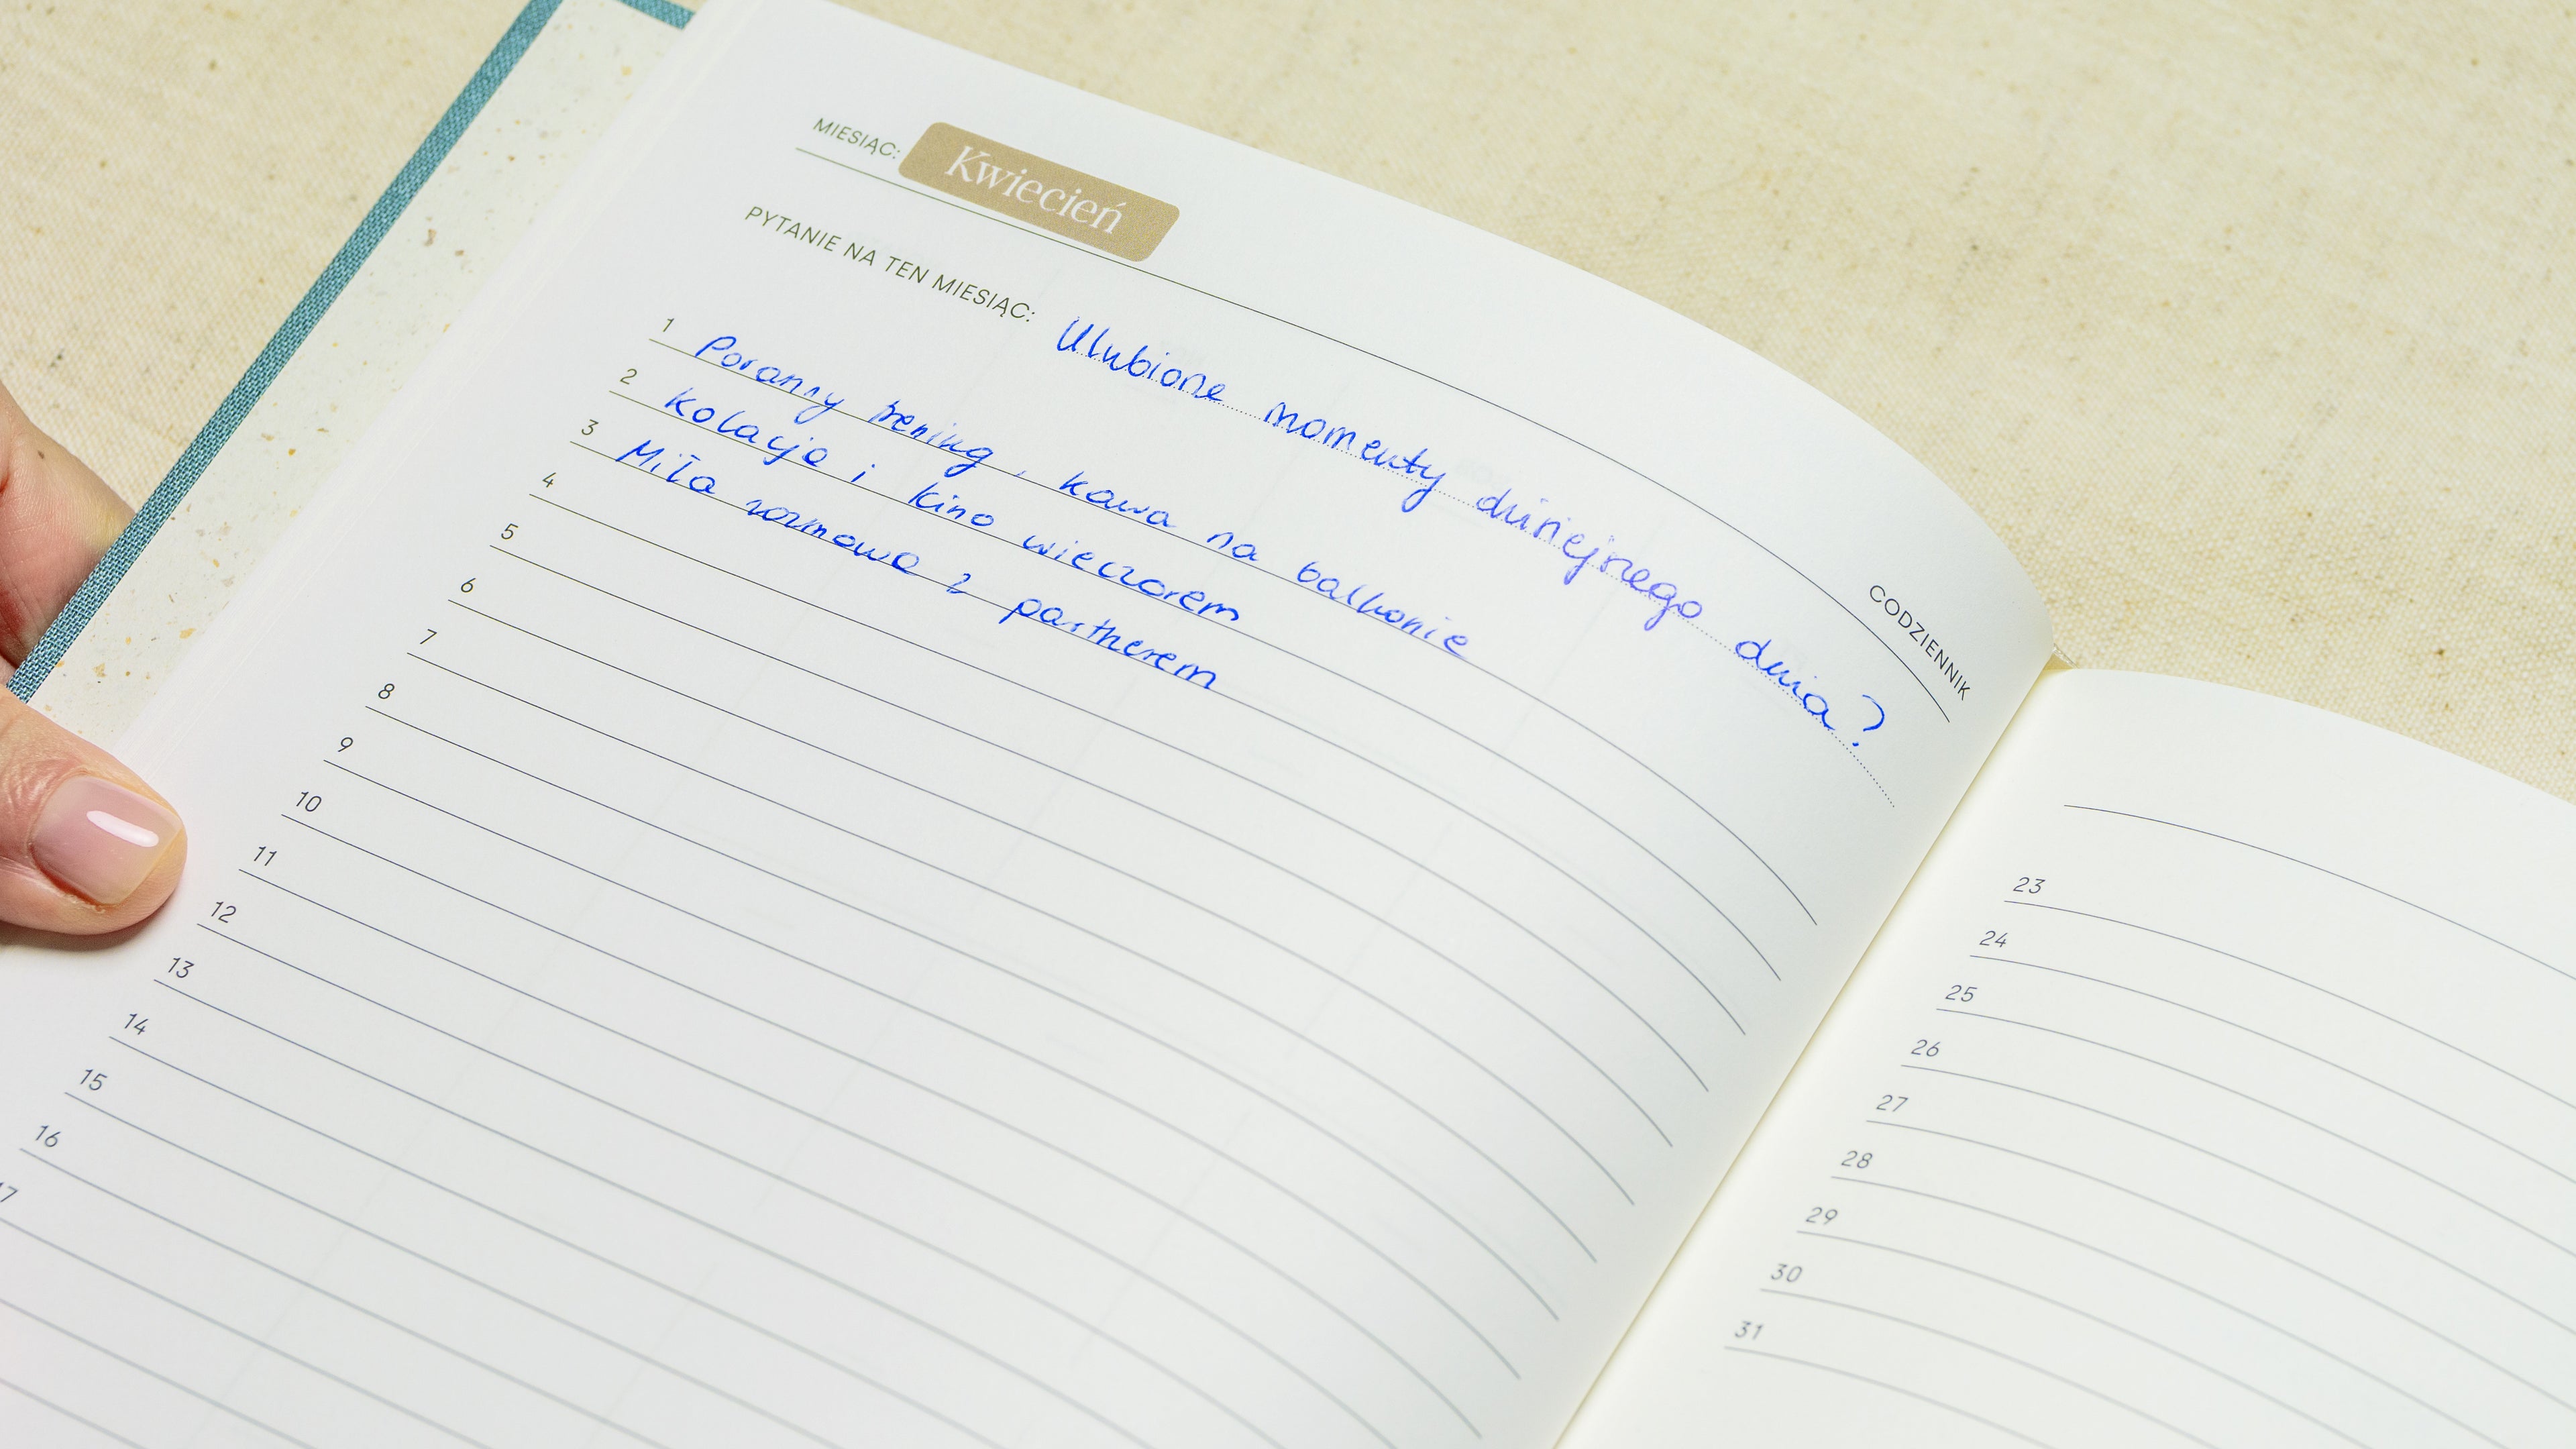 MIESIĄC: Kwiecień
PYTANIE NA TEN MIESIĄC: Ulubione momenty dzisiejszego dnia?
CODZIENNIK
1 Poranny trening, kawa na balkonie
2 Kolacja i kino wieczorem
3 Miła rozmowa z partnerem
4
5
6
7
8
9
10
11
12
13
14
15
16
17
23
24
25
26
27
28
29
30
31